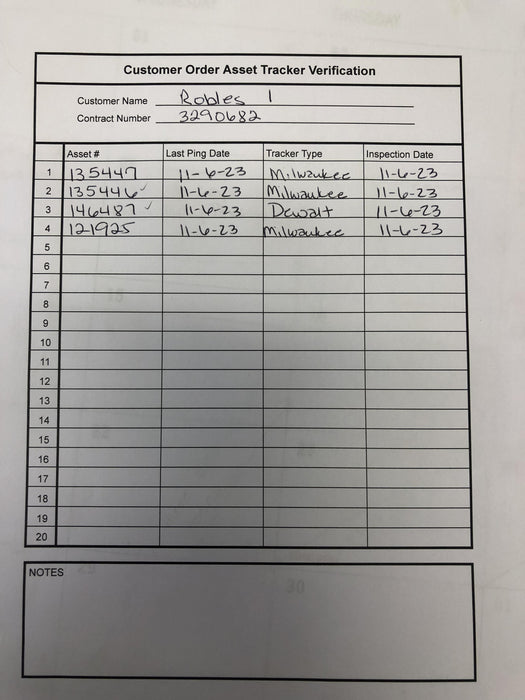 Customer Order Asset Tracker Verification
Customer Name Robles 1
Contract Number 3290682
Asset # Last Ping Date Tracker Type Inspection Date
1 135447 11-6-23 Milwaukee 11-6-23
2 135446 ✓ 11-6-23 Milwaukee 11-6-23
3 146487 ✓ 11-6-23 Dewalt 11-6-23
4 121925 11-6-23 Milwaukee 11-6-23
5
6
7
8
9
10
11
12
13
14
15
16
17
18
19
20
NOTES